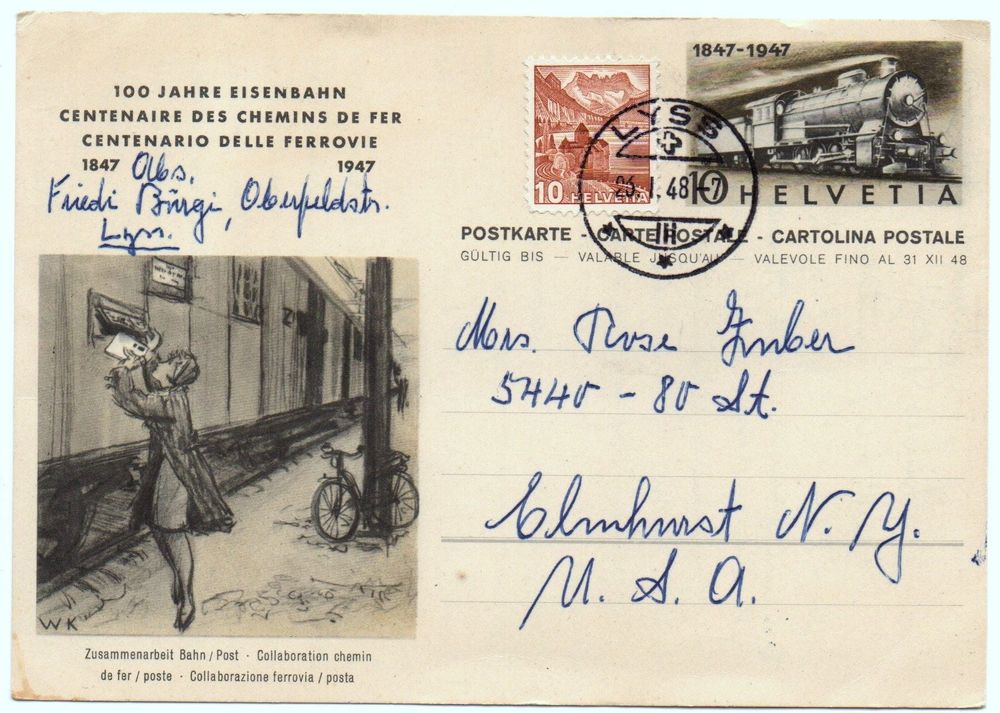 100 JAHRE EISENBAHN
CENTENAIRE DES CHEMINS DE FER
CENTENARIO DELLE FERROVIE
1847 1947
Abs.
Friedi Bürgi, Oberfeldstr.
Lyss.
10
HELVETIA
LYSS
1847-1947
10 HELVETIA
POSTKARTE - CARTE POSTALE - CARTOLINA POSTALE
GÜLTIG BIS — VALABLE JUSQU'AU — VALEVOLE FINO AL 31 XII 48
Mrs. Rose Gruber
5440 - 80 St.
Elmhurst N. Y.
U. S. A.
WK
Zusammenarbeit Bahn / Post · Collaboration chemin
de fer / poste · Collaborazione ferrovia / posta